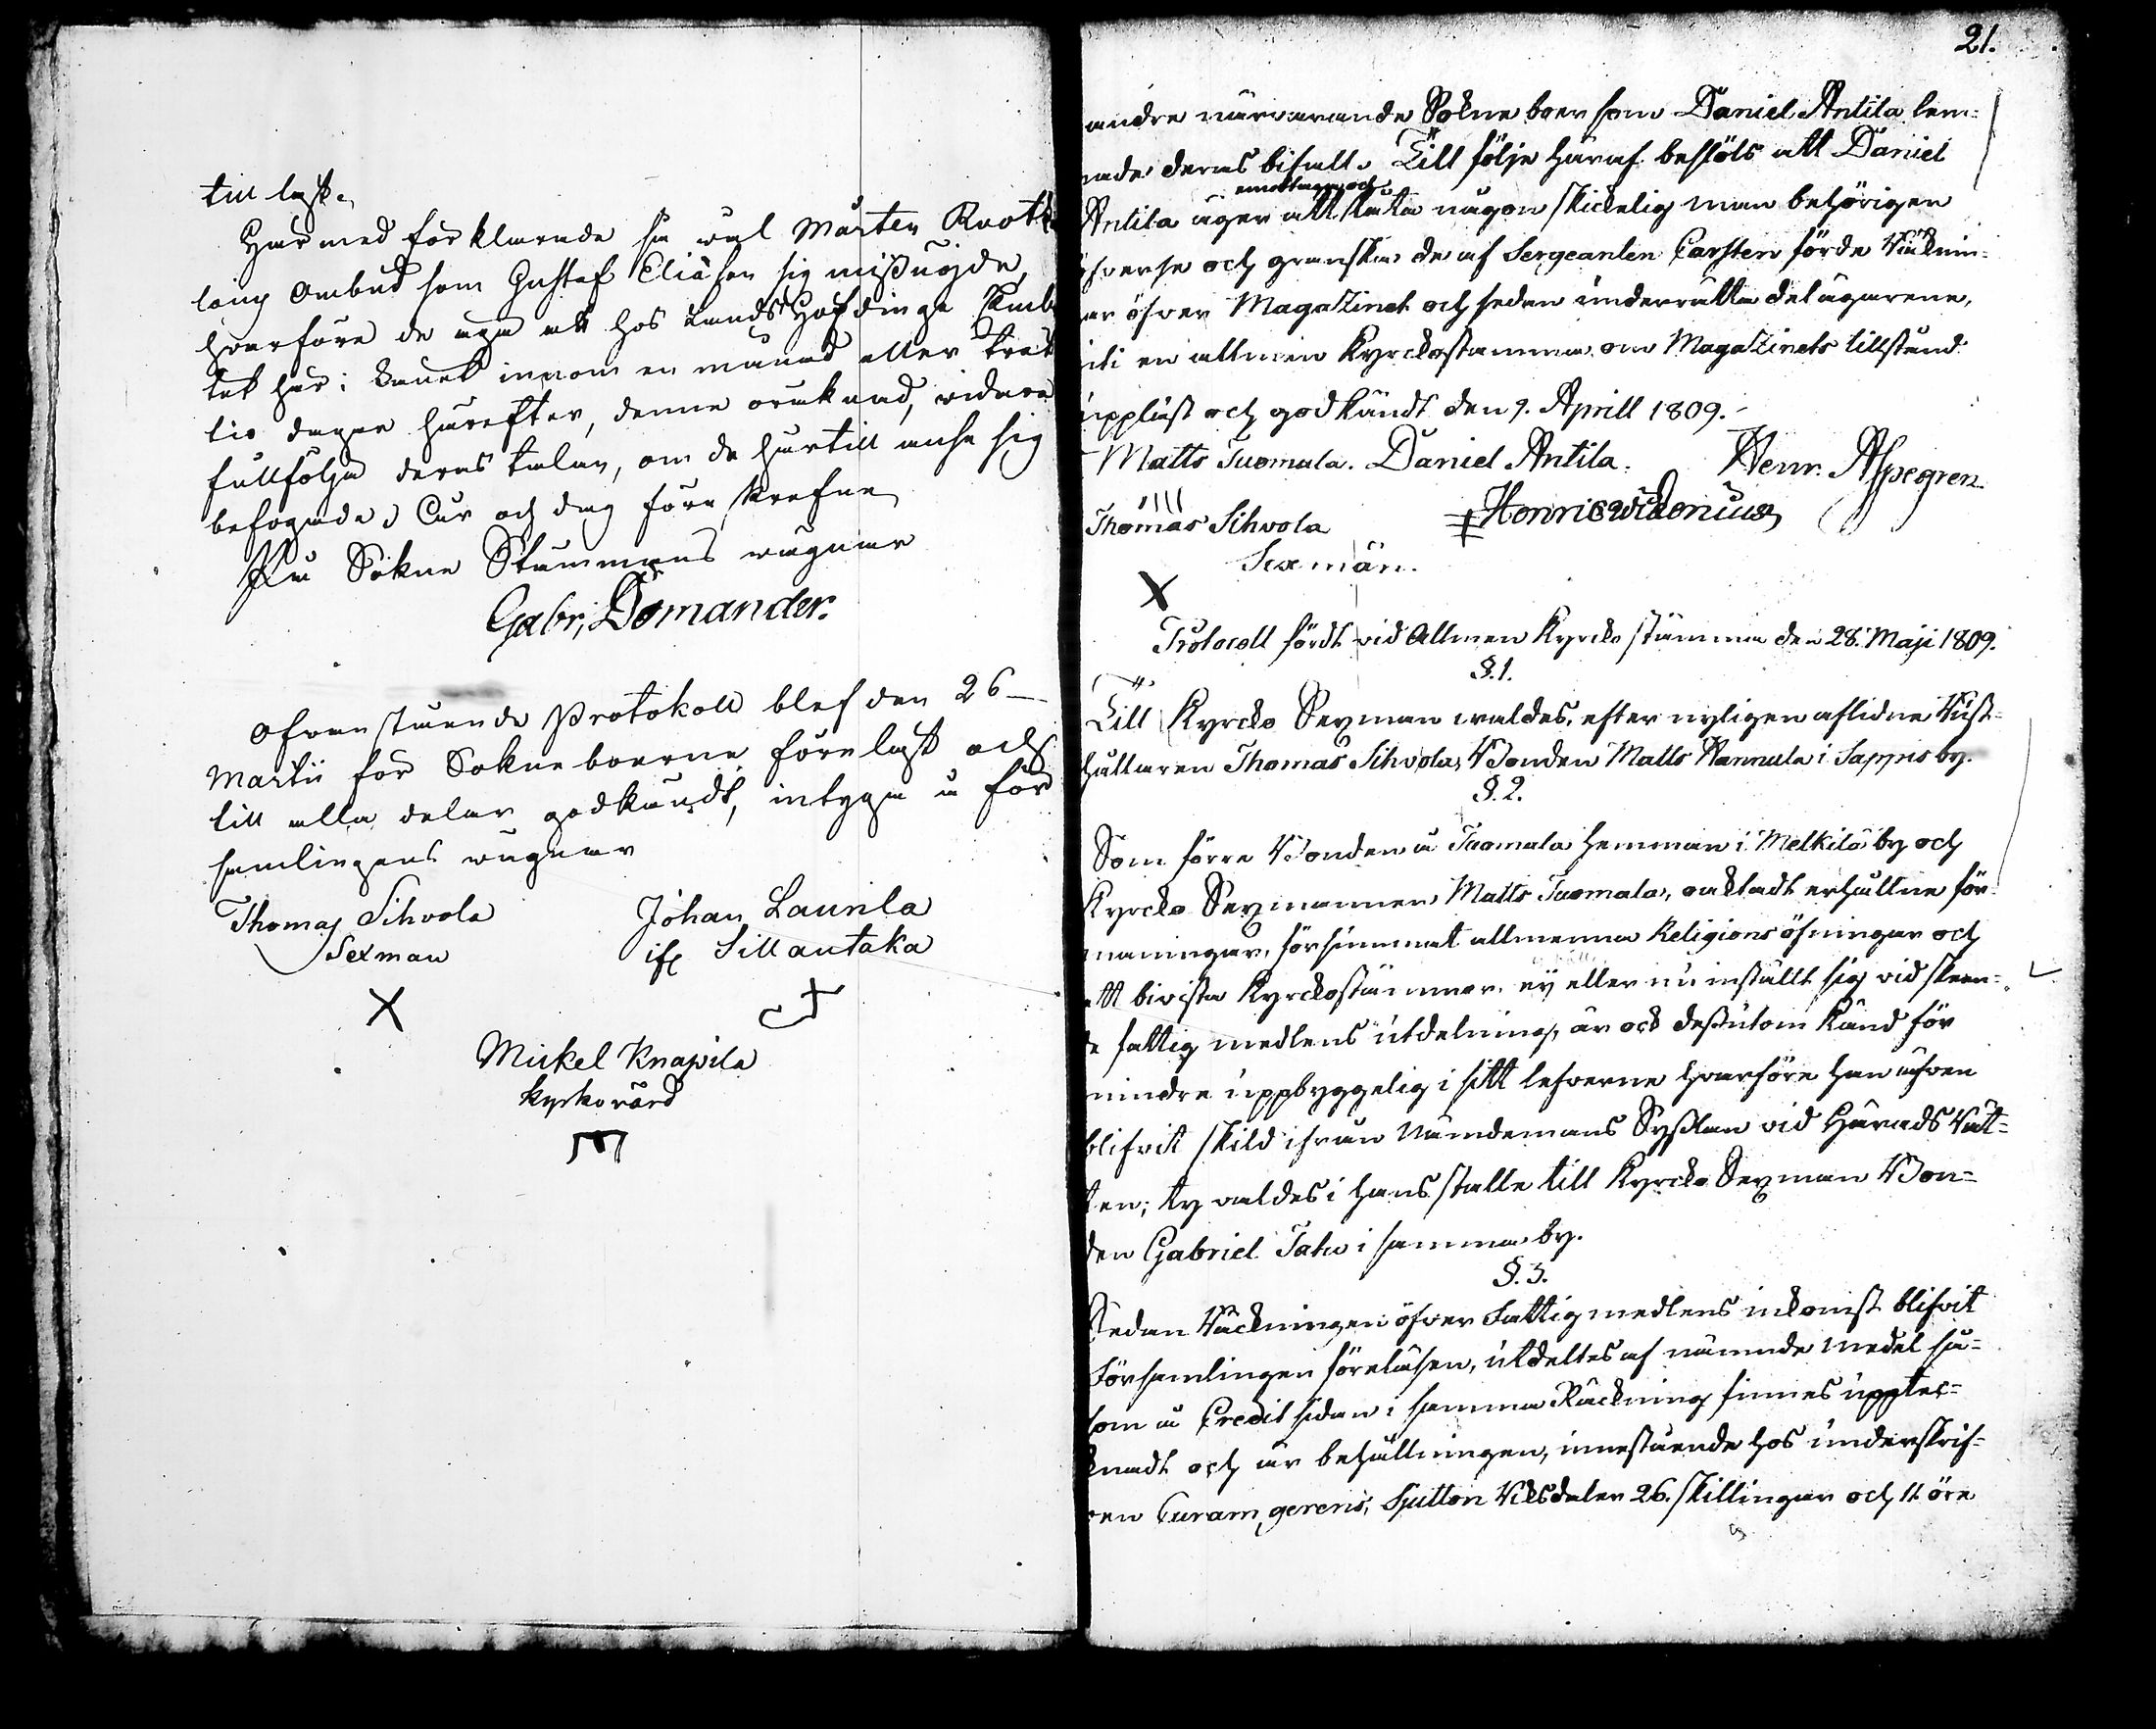 till last.
Här med förklarade så wäl Mårten Knot
lains Ombud som Gustaf Eliæson sig missnögde,
hwarföre de äga att hos Landshöfdinge Emb
tet här i Länet innom en månad eller tret
tio dagar härefter, denne oräknad, vidare
fullfölja deras talan, om de härtill anse sig
befogade. Aur och dag förr skrefne
På Sokne Stämmans wägnar
Gabr, Domander.
Ofvanstående Protokoll blef den 26
Martii för Sokneboerne förelast och
till alla delar godkändt, intyga å för
samlingens wägnar
Thomas Sihvola
Sexman
Johan Launila
if Sillantaka
Mickel Knapila
kyrkovärd
21.
andre närvarande Sokneboer som Daniel Antila lem-
nade deras bifall. Till följe häraf beslöts att Daniel
emottaga och
Antila äger att någon skickelig man behörigen
öfverse och granska de af Sergeanten Carsten förde Räknin-
ar öfver Magazinet och sedan underrätta delägarene,
uti en allmän Kyrckostämma om Magazinets tillstånd
uppläst och godkändt den 9. Aprill 1809.
Matts Tuomala. Daniel Antila. Henr. Aspegren.
Thomas Sihvola Henric Widenius
Sexmän.
Protocoll fördt vid Allmen Kyrcko stämma den 28. Maji 1809.
§. 1.
Till Kyrcko Sexman valdes, efter nyligen aflidne Rust-
hållaren Thomas Sihvola, Bonden Matts Hannula i Sappis by.
§. 2.
Som förre Bonden å Tuomala hemman i Melkilä by och
Kyrcko Sexmannen Matts Tuomala, oaktadt erhållne för-
maningar, försummat allmenna Religions öfningar och
att bivista Kyrckostämmor, ej eller nu inställt sig vid skeen-
de fattig medlens utdelning, är ock dessutom känd för
mindre uppbyggelig i sitt lefverne hvarföre han äfven
blifvit skild ifrån Nämdemans Sysslan vid Härads Rät-
ten; ty valdes i hans ställe till Kyrcko Sexman Bon-
den Gabriel Tatu i samma by.
§. 3.
Sedan Räckningen öfver Fattigmedlens inkomst blifvit
Församlingen föreläsen, utdeltes af nämnde medel så-
som å Credit sidan i samma Räckning finnes uppteck-
nadt och är behållningen, innestående hos underskrif-
ven Curam gerens, Sjutton Riksdaler 26. skillingar och 11 öre